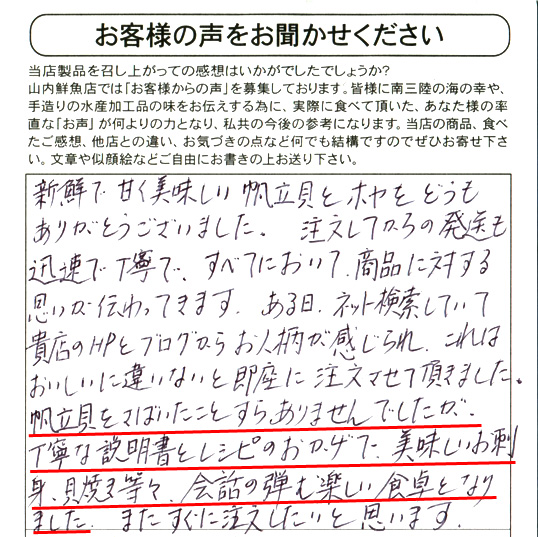 お客様の声をお聞かせください
当店製品を召し上がっての感想はいかがでしたでしょうか?
山内鮮魚店では「お客様からの声」を募集しております。皆様に南三陸の海の幸や、
手造りの水産加工品の味をお伝えする為に、実際に食べて頂いた、あなた様の率
直な「お声」が何よりの力となり、私共の今後の参考になります。当店の商品、食べ
たご感想、他店との違い、お気づきの点など何でも結構ですのでぜひお寄せ下さ
い。文章や似顔絵などご自由にお書きの上お送り下さい。
新鮮で甘く美味しい帆立貝とホヤをどうも
ありがとうございました。注文してからの発送も
迅速で丁寧で、すべてにおいて、商品に対する
思いが伝わってきます。ある日、ネット検索していて
貴店のHPとブログからお人柄が感じられ、これは
おいしいに違いないと即座に注文させて頂きました。
帆立貝をさばいたことすらありませんでしたが、
丁寧な説明書とレシピのおかげで、美味しいお刺
身、貝焼き等々、会話の弾む楽しい食卓となり
ました。またすぐに注文したいと思います。